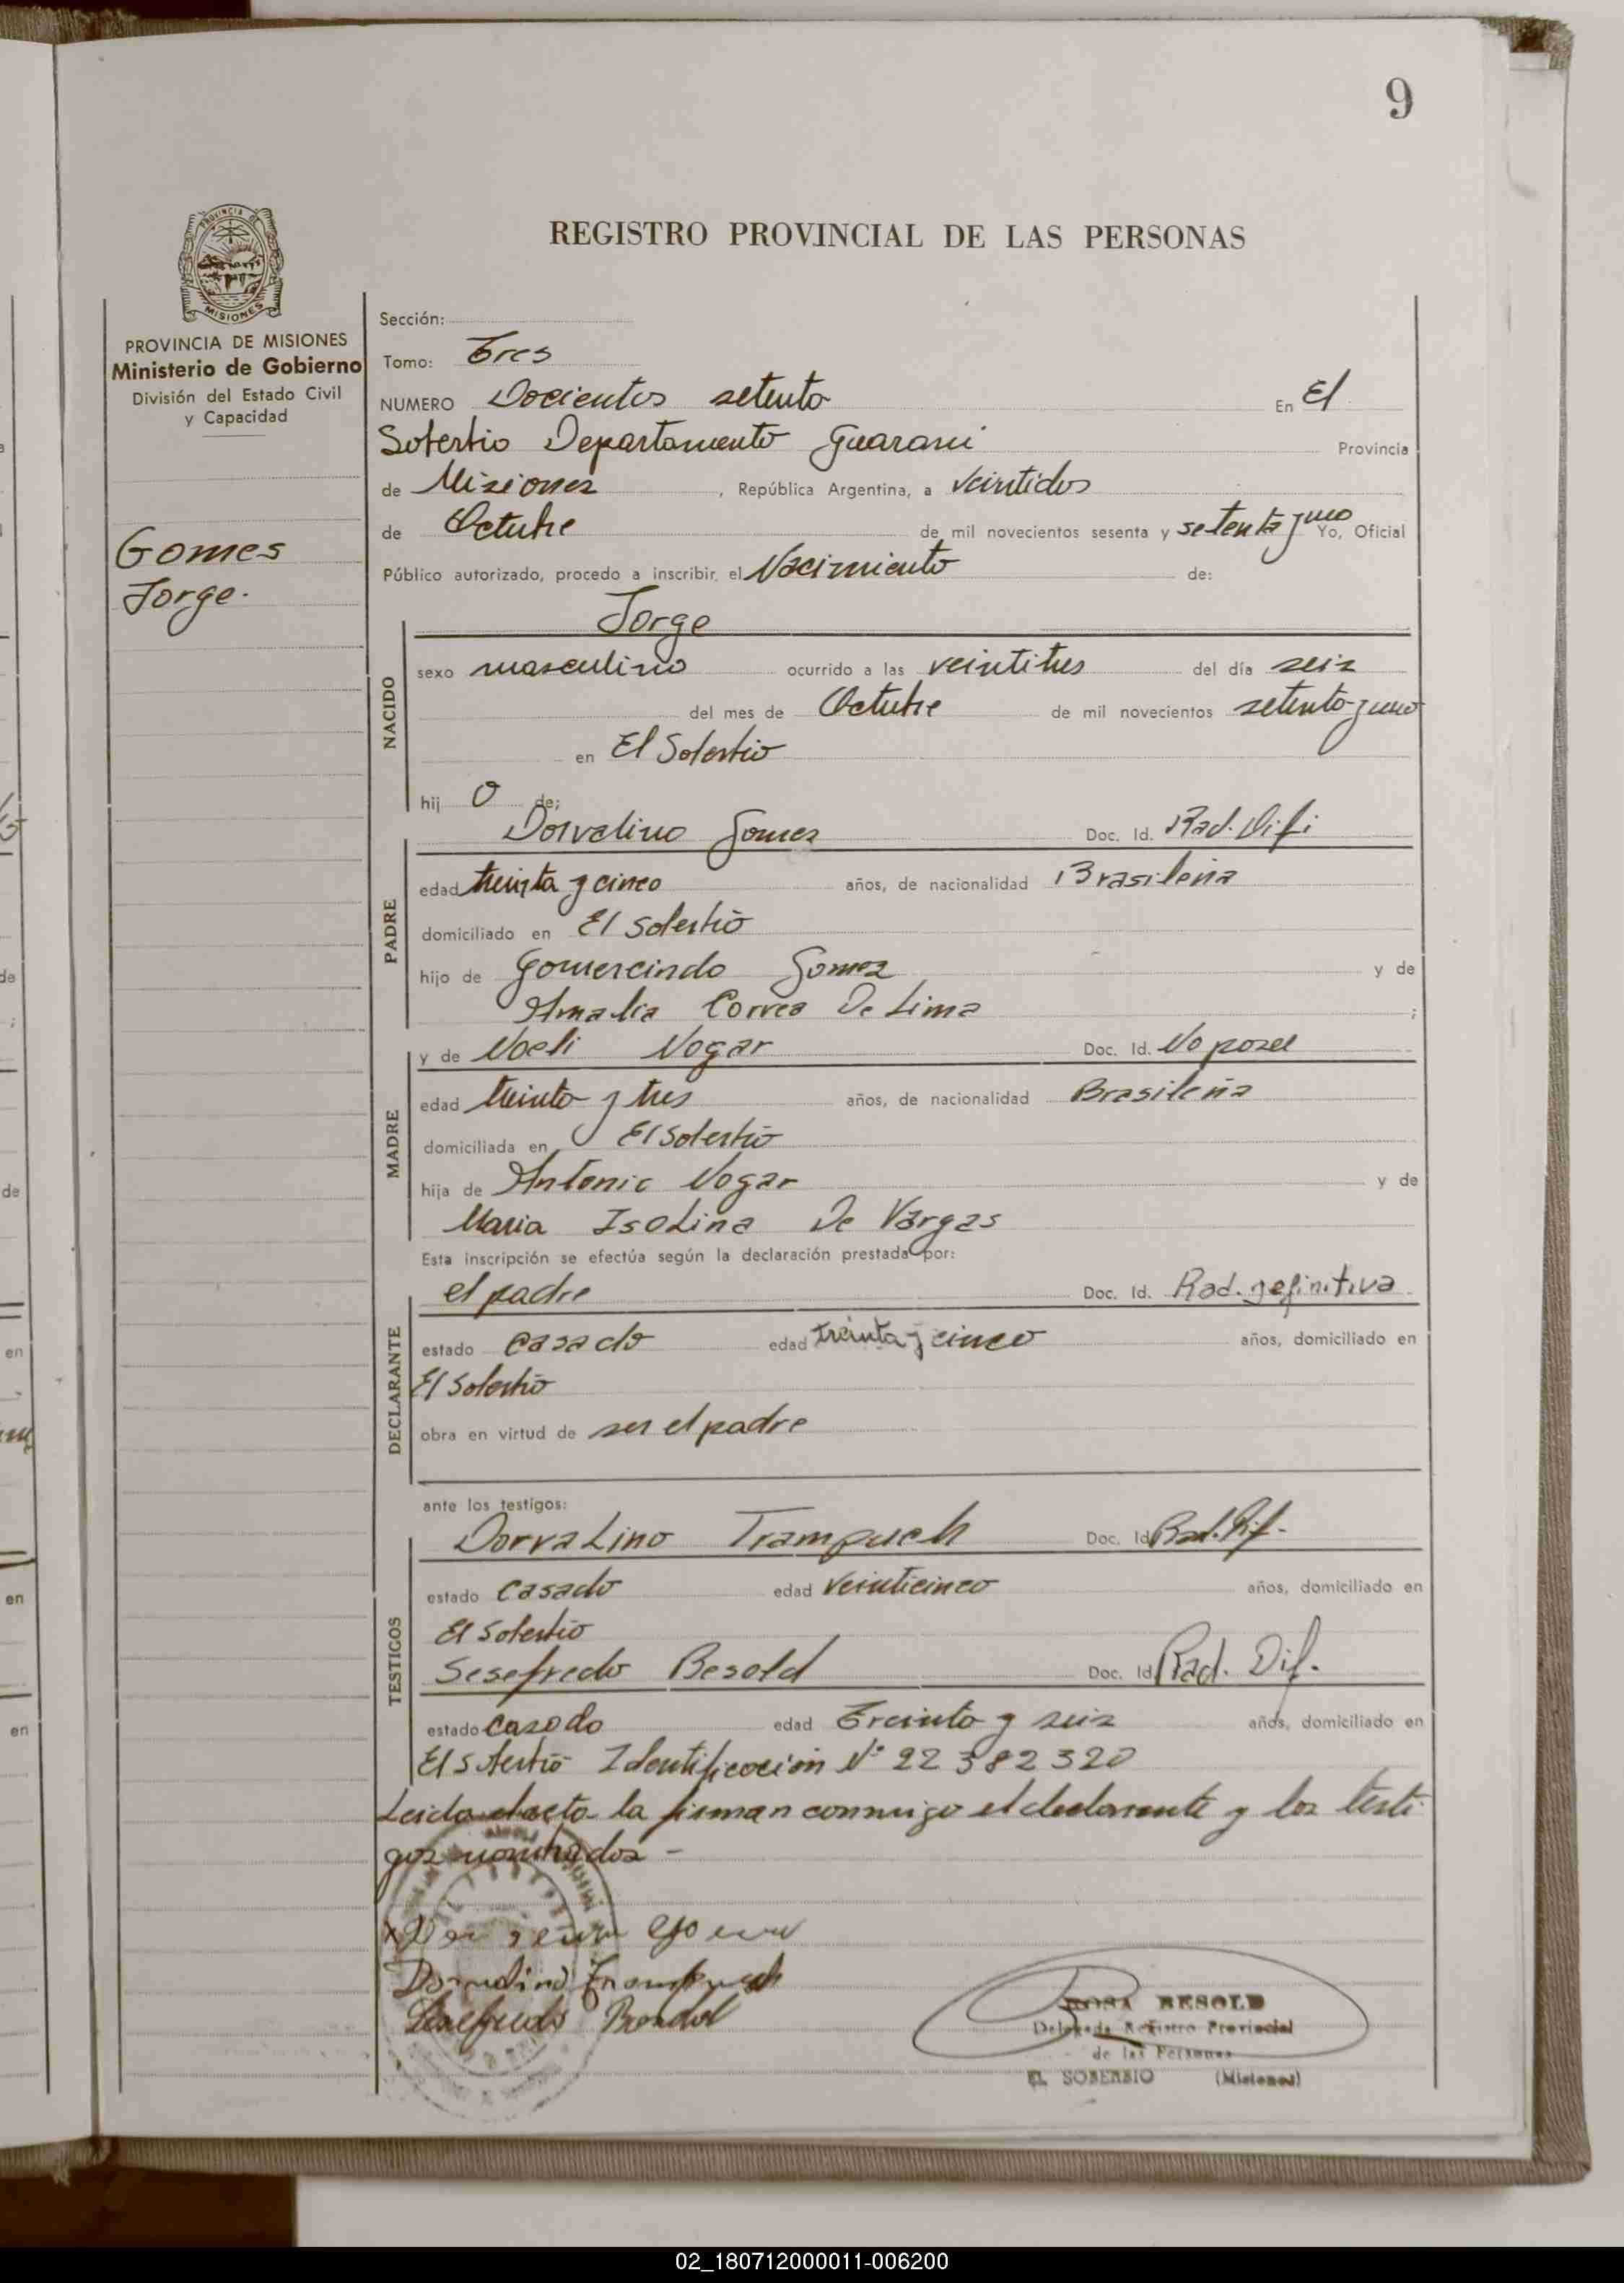 9
REGISTRO PROVINCIAL DE LAS PERSONAS
PROVINCIA DE
MISIONES
PROVINCIA DE MISIONES
Ministerio de Gobierno
División del Estado Civil
y Capacidad
Gomes
Jorge.
Sección:
Tomo: Tres
NUMERO Docientos setenta En El
Soberbio Departamento Guarani Provincia
de Misiones, República Argentina, a veintidos
de Octubre de mil novecientos sesenta y setenta y uno Yo, Oficial
Público autorizado, procedo a inscribir, el Nacimiento de:
Jorge
NACIDO
sexo masculino ocurrido a las veintitres del día seis
del mes de Octubre de mil novecientos setenta y uno
en El Soberbio
hij o de:
PADRE
Dorvalino Gomes Doc. Id. Rad. Difi
edad treinta y cinco años, de nacionalidad Brasileña
domiciliado en El Soberbio
hijo de Gomercindo Gomes y de
Amalia Correa De Lima ;
MADRE
y de Noeli Nogar Doc. Id. No posee
edad treinta y tres años, de nacionalidad Brasileña
domiciliada en El Soberbio
hija de Antonio Nogar y de
Maria Isolina De Vargas
Esta inscripción se efectúa según la declaración prestada por:
DECLARANTE
el padre Doc. Id. Rad. definitiva
estado casado edad treinta y cinco años, domiciliado en
El Soberbio
obra en virtud de ser el padre
ante los testigos:
TESTIGOS
Dorvalino Trampuch Doc. Id. Rad. Dif.
estado casado edad veinticinco años, domiciliado en
El Soberbio
Sesefredo Besold Doc. Id. Rad. Dif.
estado casado edad Treinta y seis años, domiciliado en
El Soberbio Identificación N° 22 382 320
Leida el acta la firman conmigo el declarante y los testi-
gos nombrados -
Dorvalino Trampuch
Sesefredo Besold
ROSA BESOLD
Delegada Registro Provincial
de las Personas
EL SOBERBIO (Misiones)
02_180712000011-006200